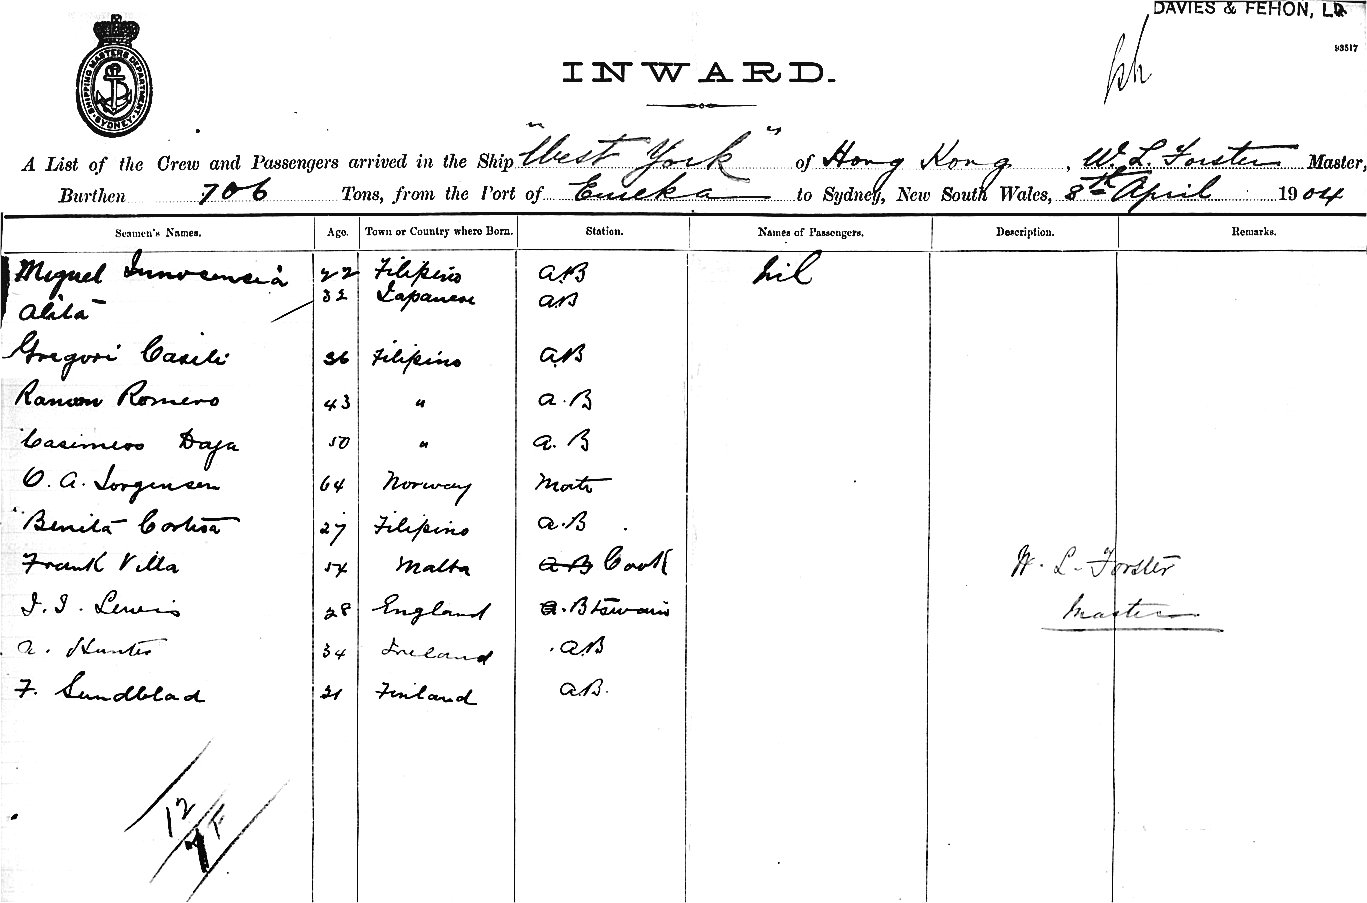 DAVIES & FEHON, LD.
93517
SHIPPING MASTERS DEPARTMENT SYDNEY
INWARD.
A List of the Crew and Passengers arrived in the Ship "West York" of Hong Kong, W. L. Forster Master,
Burthen 706 Tons, from the Port of Eureka to Sydney, New South Wales, 8th April 1904
Seamen's Names. Age. Town or Country where Born. Station. Names of Passengers. Description. Remarks.
Miguel Innosensia 22 Filipino A.B nil
Alita 32 Japanese AB
Gregori Casili 36 Filipino A.B
Ramon Romero 43 " a.B
Casimero Daja 50 " a.B
O. A. Jorgensen 64 Norway Mate
Benita 27 Filipino a.B
Frank Villa 54 Malta a B Cook W. L. Forster
J. J. Lewis 28 England a.B Master
A. Hunter 34 Ireland AB
F. Sundblad 21 Finland AB.
12